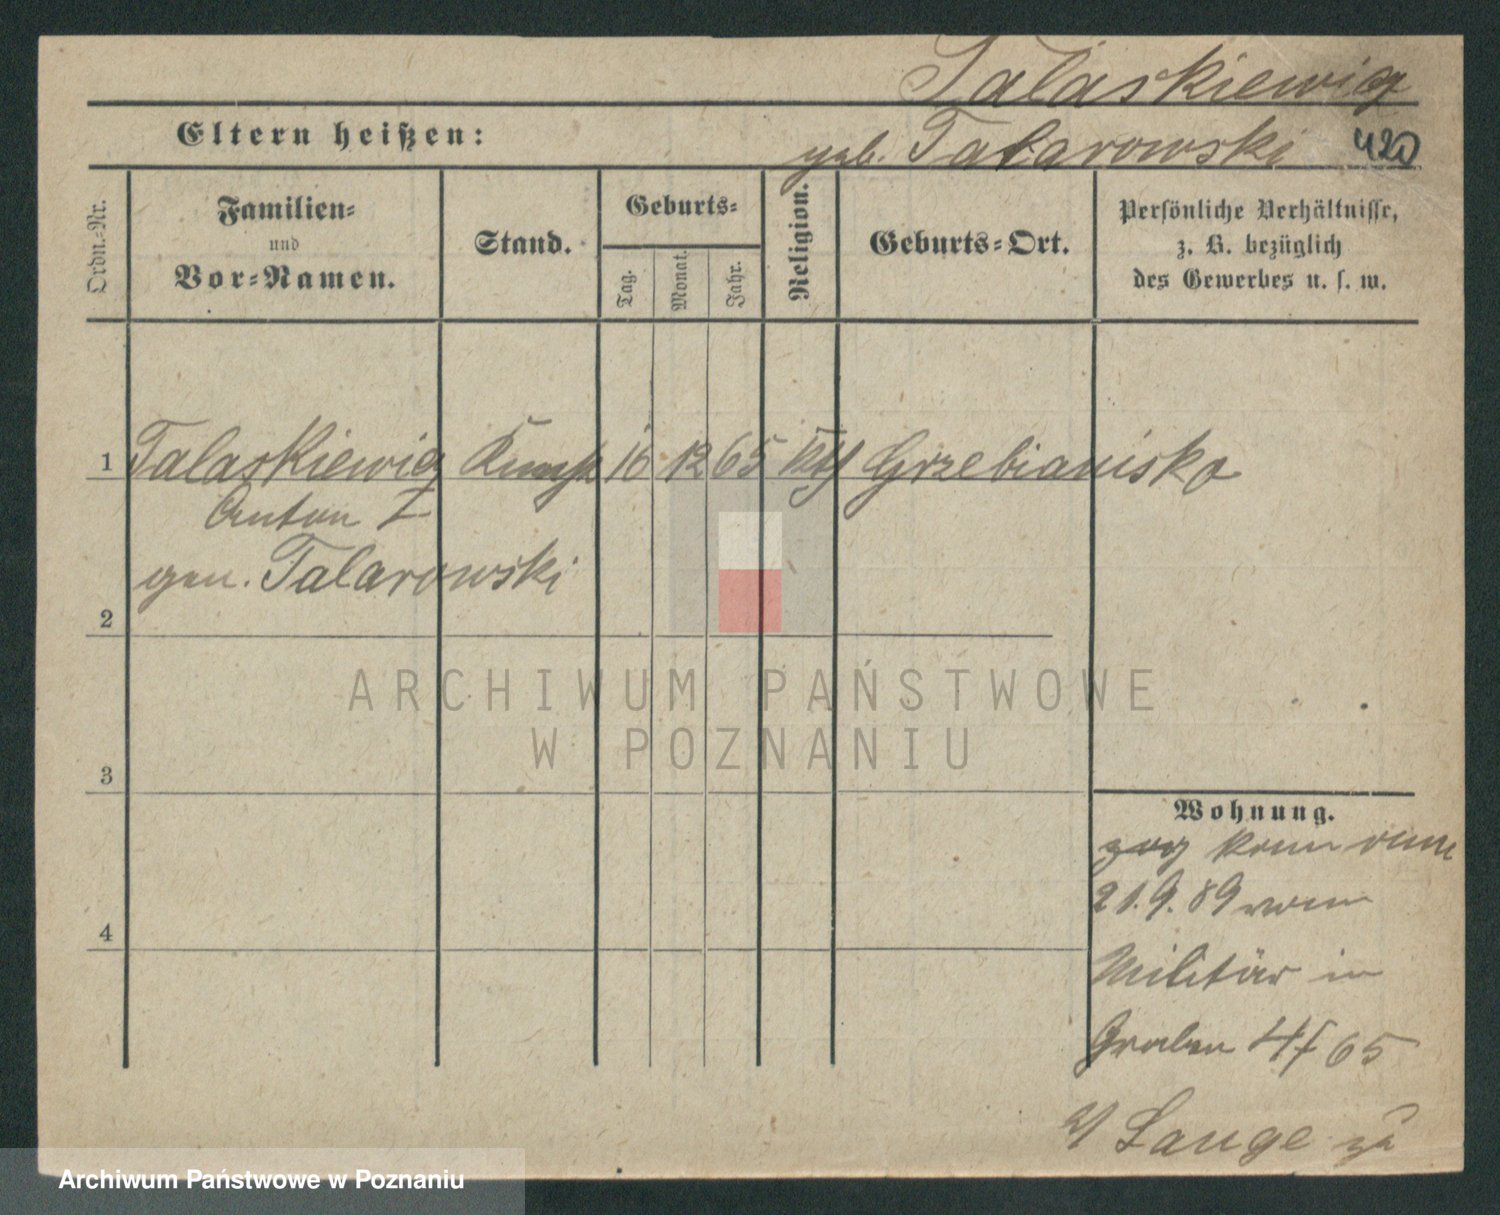 Talaskiewicz
Eltern heißen:
geb. Talarowski 420
Ordn.-Nr.
Familien-
und
Vor-Namen.
Stand.
Geburts-
Tag.
Monat.
Jahr.
Religion.
Geburts-Ort.
Persönliche Verhältnisse,
z. B. bezüglich
des Gewerbes u. s. w.
1 Talaskiewicz 16 12 65 Kth Grzebianisko
Anton
gen. Talarowski
2
3
4
Wohnung.
21.9.89 vom
Militär in
Graben 4 65
Lange
ARCHIWUM PAŃSTWOWE
W POZNANIU
Archiwum Państwowe w Poznaniu